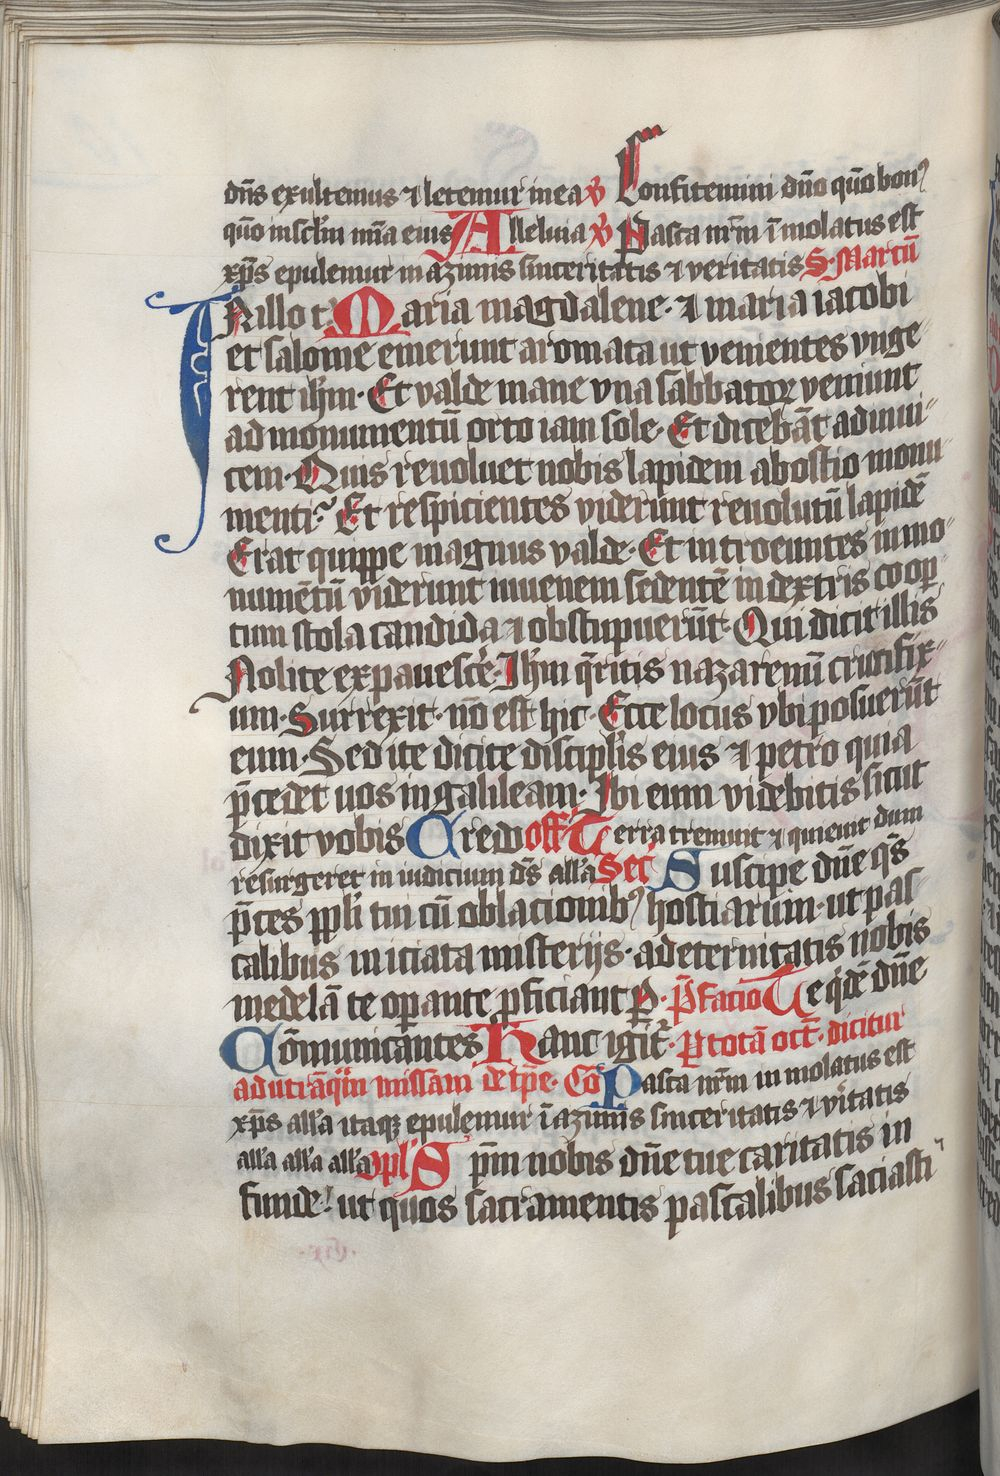 dn̄s exultemus ⁊ letemur in ea ꝟ Confitemini dn̄o qūo bonꝰ
qūo in sc̄lm mīa eius Alleluia ꝟ Pasca nr̄m īmolatus est
xp̄s epulemur in azimis sinceritatis ⁊ veritatis S. Marcū
IN illo t̄. Maria magdalene. ⁊ maria iacobi
et salome emerunt aromata ut venientes vnge
rent ih̄m. Et valde mane vna sabbatoꝝ veniunt
ad monumentū orto iam sole. Et dicebāt adinui
cem. Quis reuoluet nobis lapidem ab ostio monu
menti? Et respicientes viderunt reuolutū lapidē
Erat quippe magnus valde. Et introeuntes in mo
numētū viderunt iuuenem sedentē in dextris cooꝑ
tum stola candida ⁊ obstupuerūt. Qui dicit illis
Nolite expauescē. Ih̄m q̄ritis nazarenū crucifix
um. Surrexit. nō est hic. Ecce locus vbi posuerūt
eum. Sed ite dicite discipl̄is eius ⁊ petro quia
p̄cedet uos in galileam. Ibi eum videbitis sicut
dixit vobis Credo off̄ Terra tremuit ⁊ quieuit dum
resurgeret in iudicium dī̄s all̄a Sec̄ Suscipe dn̄e q̄s
p̄ces ppl̄i tui cū oblacionibꝰ hostiarum. ut pas
calibus iniciata misterijs. ad eternitatis nobis
medelā te oꝑante ꝓficiant P. p̄facio Te q̇dē dn̄e
Cōmunicantes Hanc igit̄. P totā oct̄. dicitur
ad utrāq̄ missam de tp̄e. Cō Pasca nr̄m inmolatus est
xp̄s all̄a itaqꝫ epulemur ī azimis sinceritatis ⁊ v̄itatis
all̄a all̄a all̄a ꝯpl̄ Sp̄m nobis dn̄e tue caritatis in
funde! ut quos sacramentis pascalibus saciasti